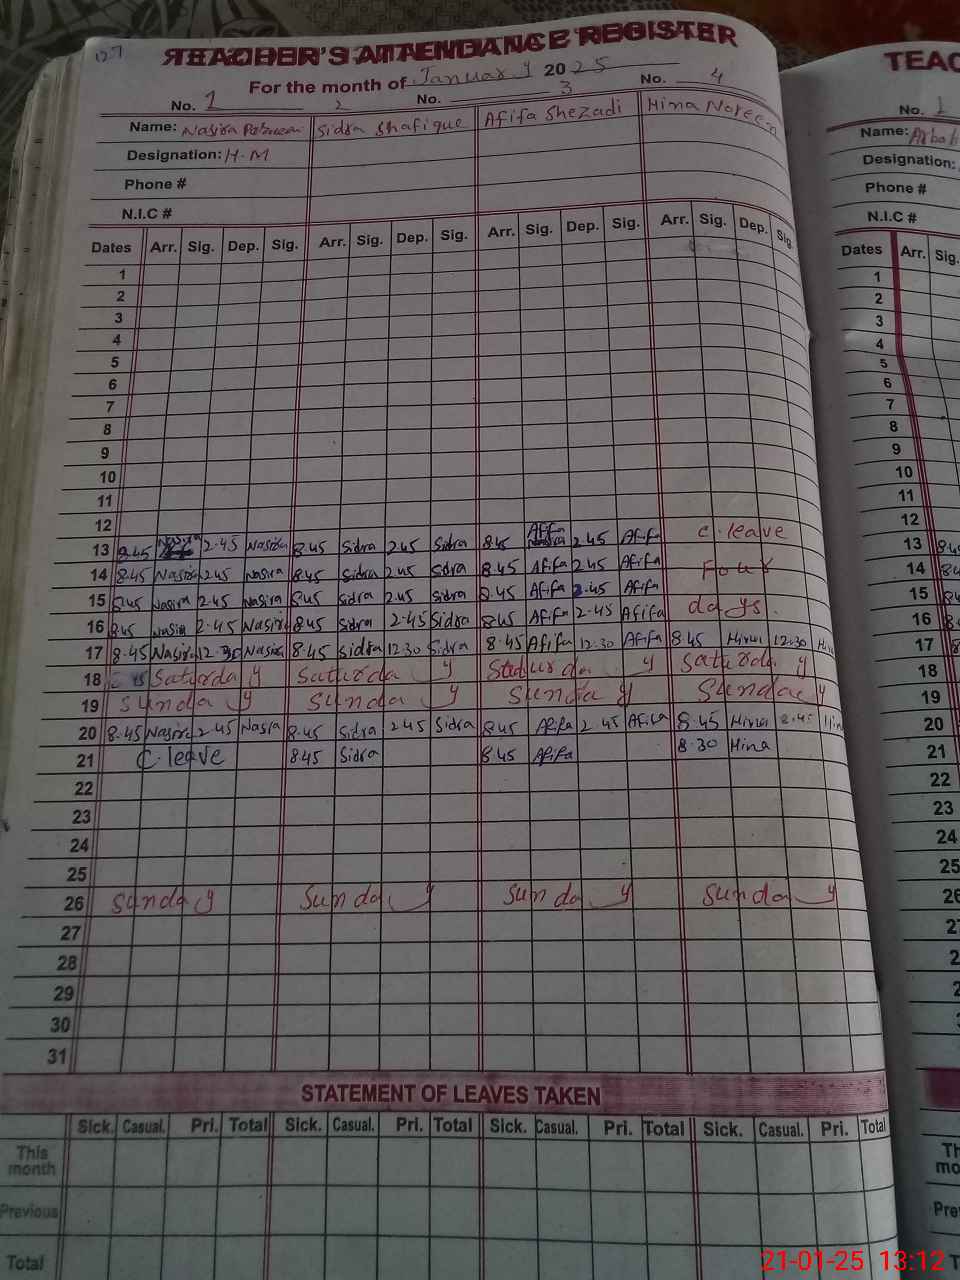 127
TEACHER'S ATTENDANCE REGISTER
For the month of January 2025
No. 1 2 No. 3 No. 4
Name: Nasira Sidra Shafique Afifa Shezadi Hina Noreen
Designation: H.M
Phone #
N.I.C #
Dates Arr. Sig. Dep. Sig. Arr. Sig. Dep. Sig. Arr. Sig. Dep. Sig. Arr. Sig. Dep. Sig.
1
2
3
4
5
6
7
8
9
10
11
12
13 8.45 2.45 Nasira 8.45 Sidra 2.45 Sidra 8.45 Afifa 2.45 Afifa c.leave
14 8.45 Nasira 2.45 Nasira 8.45 Sidra 2.45 Sidra 8.45 Afifa 2.45 Afifa Four
15 8.45 Nasira 2.45 Nasira 8.45 Sidra 2.45 Sidra 8.45 Afifa 2.45 Afifa days.
16 8.45 Nasira 2.45 Nasira 8.45 Sidra 2.45 Sidra 8.45 Afifa 2.45 Afifa
17 8.45 Nasira 12.30 Nasira 8.45 Sidra 12.30 Sidra 8.45 Afifa 12.30 Afifa 8.45 Hina 12.30
18 Saturday Saturday Staturday Saturday
19 Sunday Sunday Sunday Sunday
20 8.45 Nasira 2.45 Nasira 8.45 Sidra 2.45 Sidra 8.45 Afifa 2.45 Afifa 8.45 Hina 2.45 Hina
21 C.leave 8.45 Sidra 8.45 Afifa 8.30 Hina
22
23
24
25
26 Sunday Sunday Sunday Sunday
27
28
29
30
31
STATEMENT OF LEAVES TAKEN
Sick. Casual. Pri. Total Sick. Casual. Pri. Total Sick. Casual. Pri. Total Sick. Casual. Pri. Total
This month
Previous
Total
TEAC
No. 1
Name:
Designation:
Phone #
N.I.C #
Dates Arr. Sig.
1
2
3
4
5
6
7
8
9
10
11
12
13
14
15
16
17
18
19
20
21
22
23
24
25
21-01-25 13:12